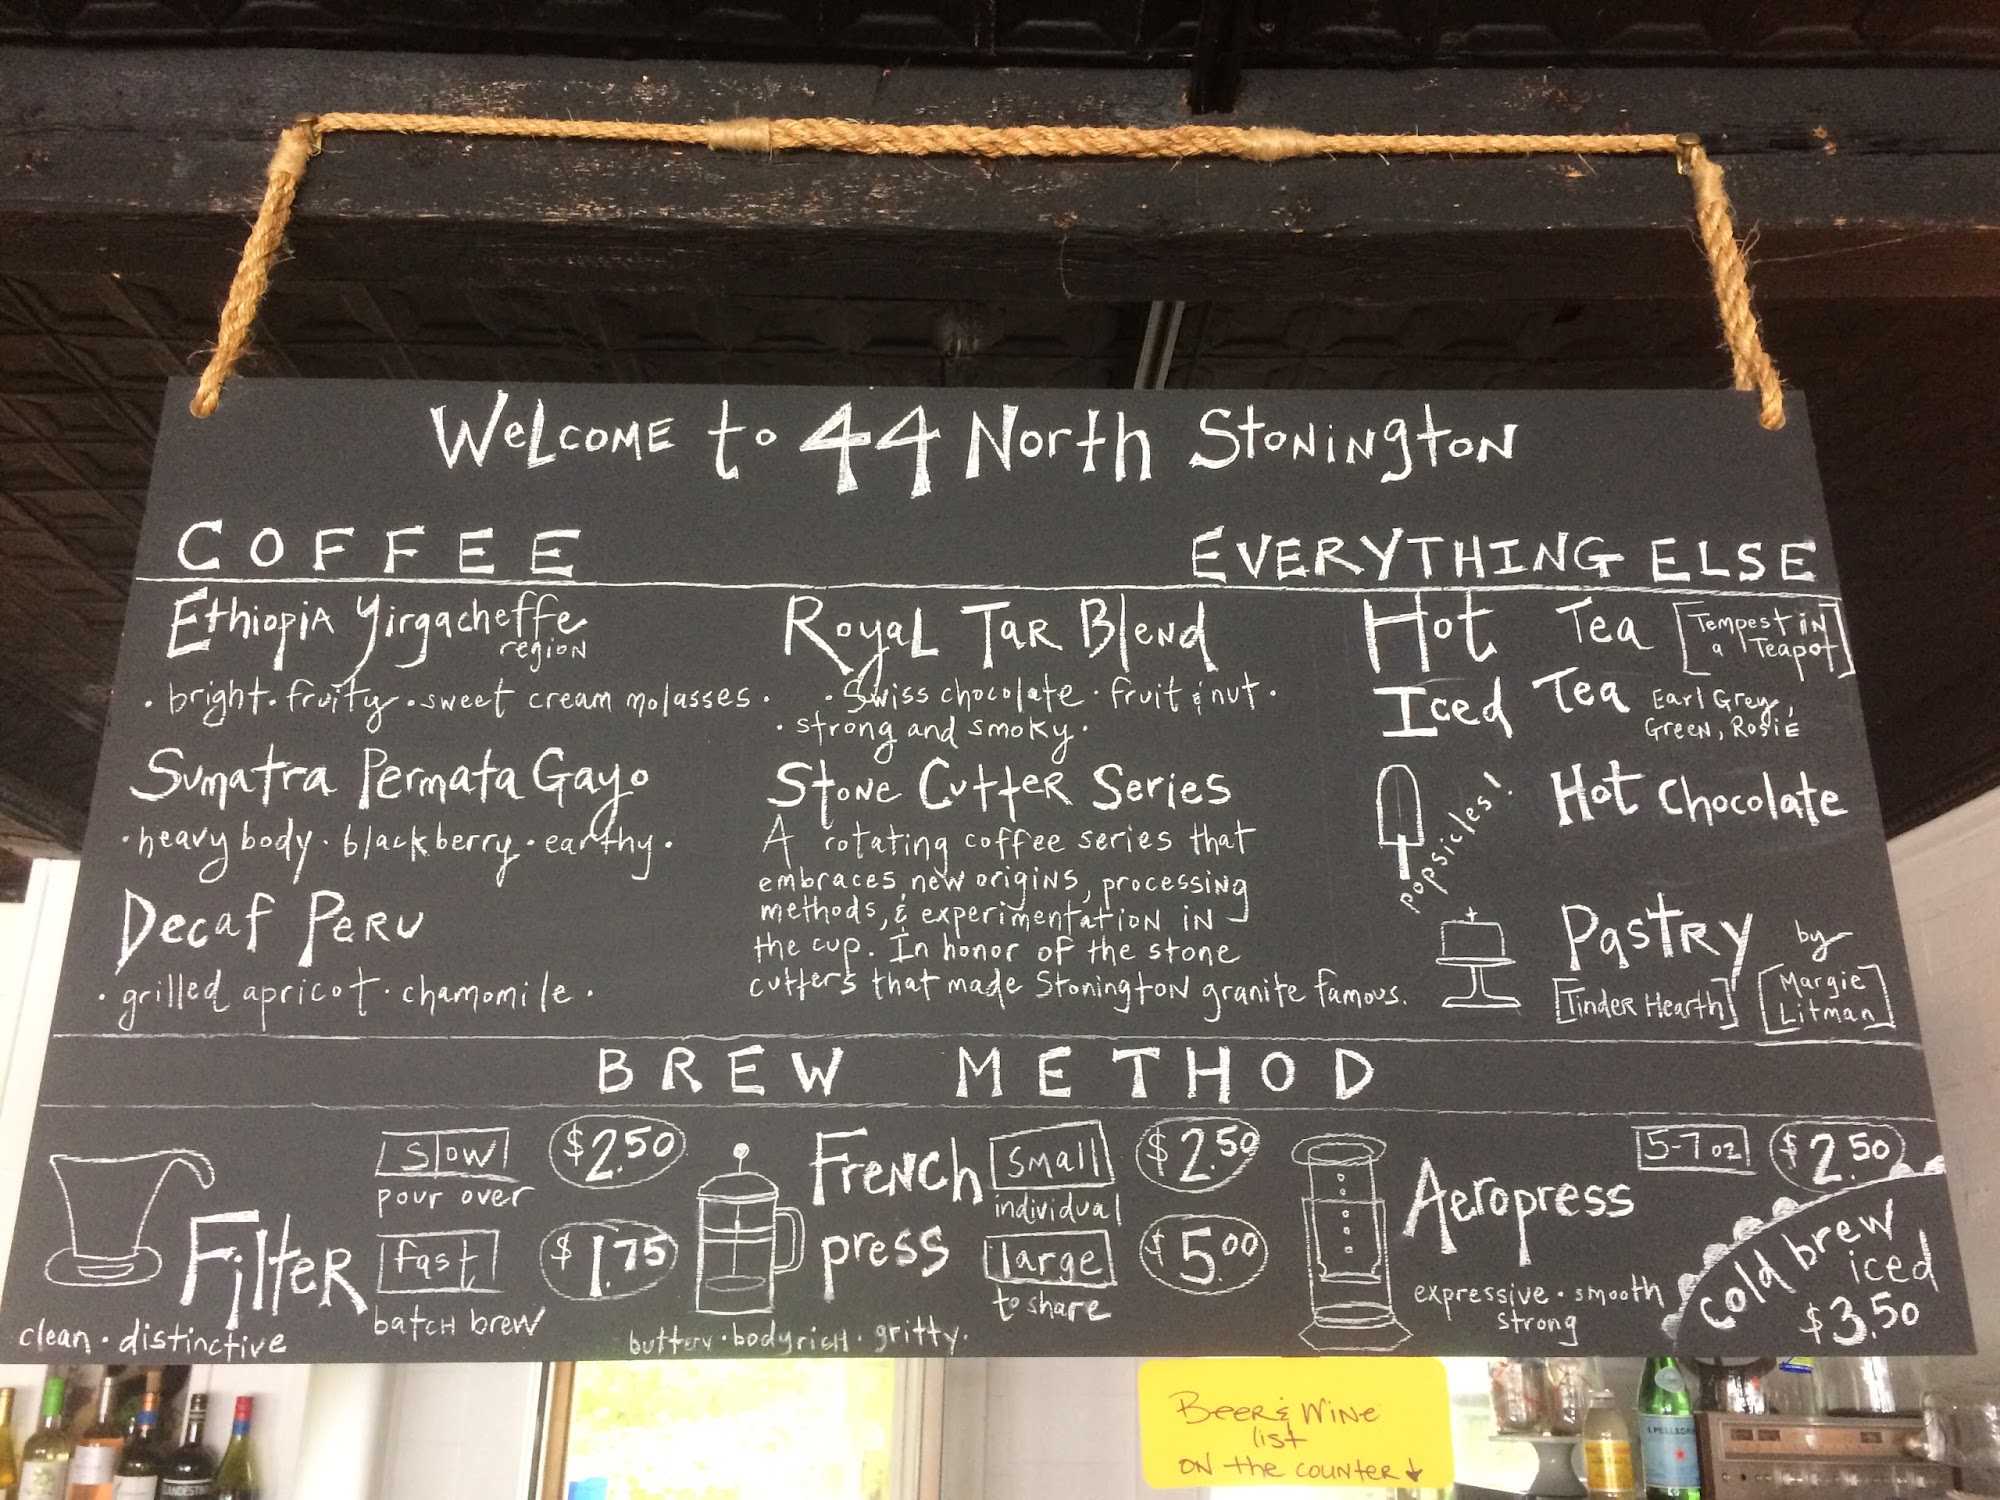 Welcome to 44 North Stonington
COFFEE
Ethiopia Yirgacheffe
region
· bright · fruity · sweet cream molasses ·
Sumatra Permata Gayo
· heavy body · blackberry · earthy ·
Decaf Peru
· grilled apricot · chamomile ·
Royal Tar Blend
· Swiss chocolate · fruit & nut ·
· strong and smoky ·
Stone Cutter Series
A rotating coffee series that
embraces new origins, processing
methods, & experimentation in
the cup. In honor of the stone
cutters that made Stonington granite famous.
EVERYTHING ELSE
Hot Tea [Tempest in
a Teapot]
Iced Tea Earl Grey,
Green, Rosie
popsicles!
Hot Chocolate
Pastry by
[Tinder Hearth] [Margie
Litman]
BREW METHOD
Filter
clean · distinctive
slow $2.50
pour over
fast $1.75
batch brew
French
press
buttery · body rich · gritty ·
small $2.50
individual
large $5.00
to share
Aeropress
5-7 oz $2.50
expressive · smooth
strong
cold brew
iced
$3.50
Beer & Wine
list
on the counter ↓
S.PELLEGRINO